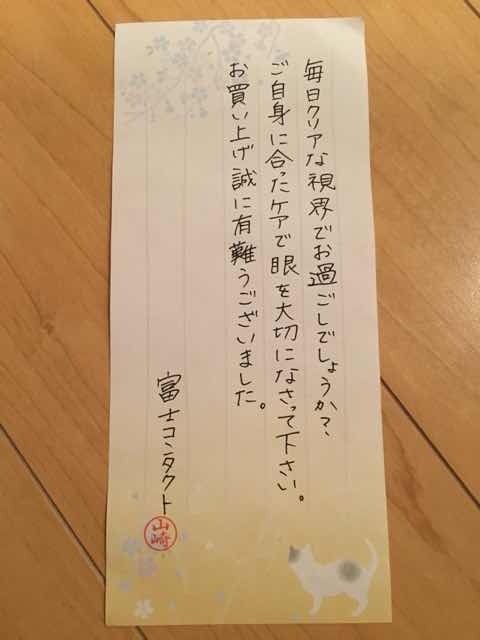 毎日クリアな視界でお過ごしでしょうか?
ご自身に合ったケアで眼を大切になさって下さい。
お買い上げ誠に有難うございました。
富士コンタクト
山崎